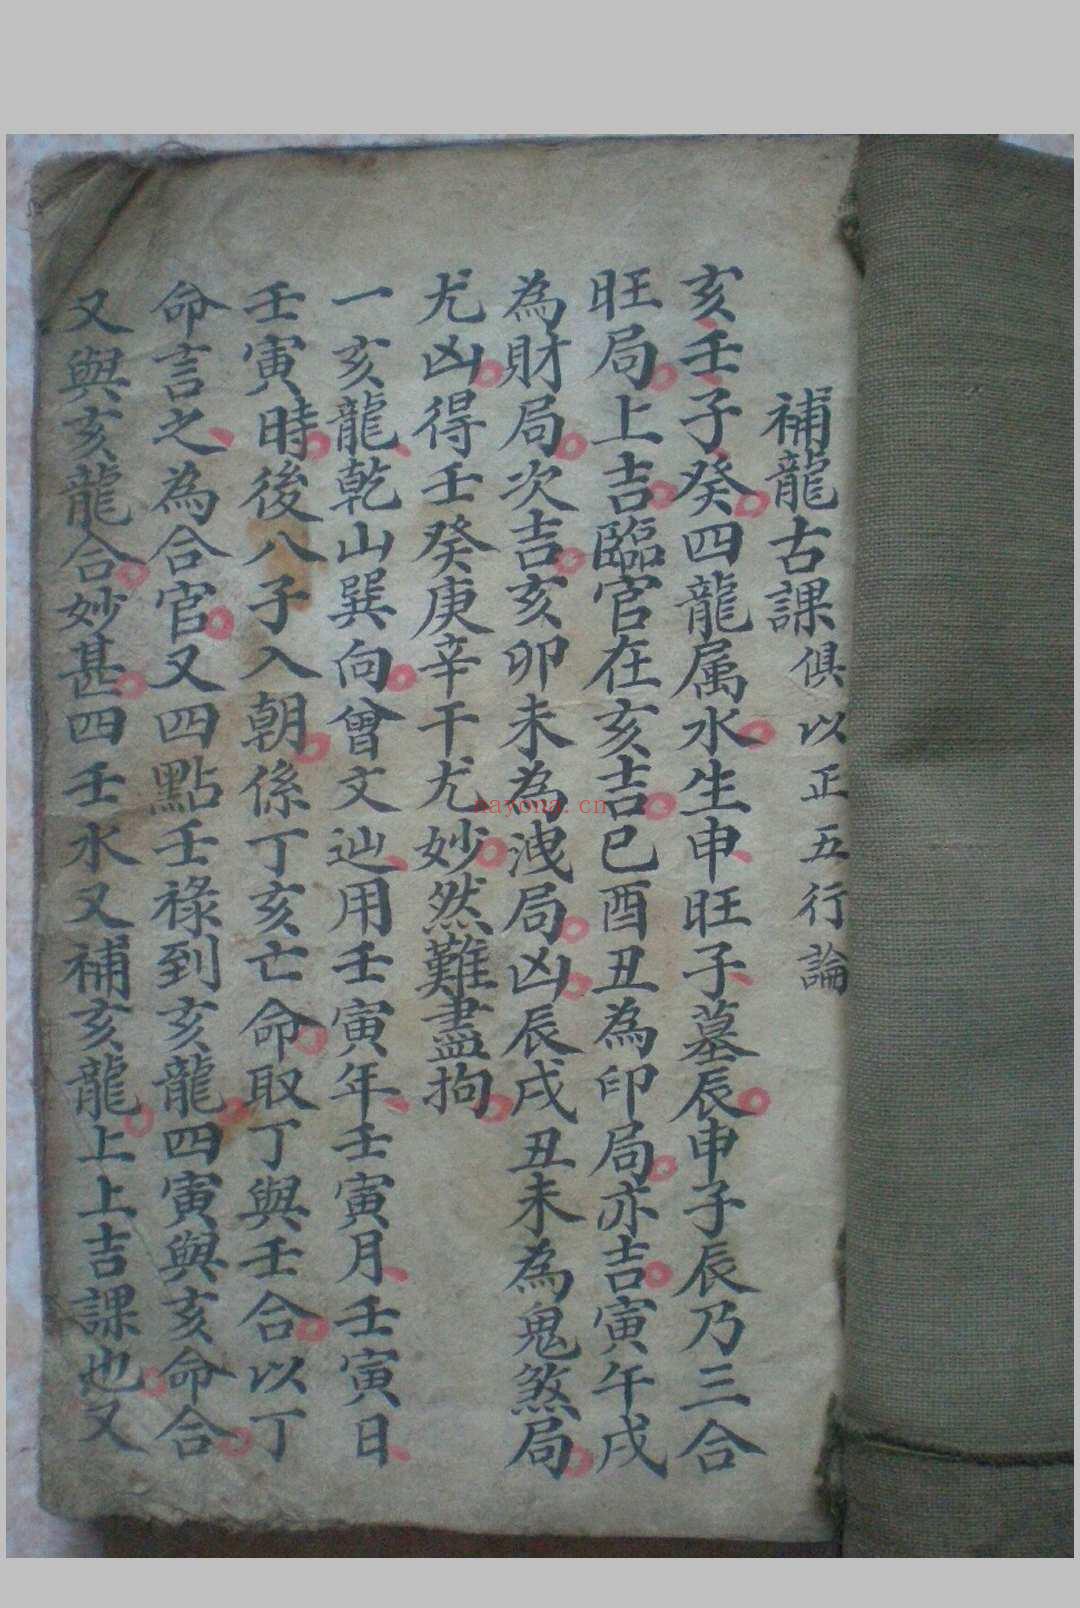 補龍古課俱以正五行論
亥壬子癸四龍属水生申旺子墓辰申子辰乃三合
旺局上吉臨官在亥吉巳酉丑為印局亦吉寅午戌
為財局次吉亥卯未為洩局凶辰戌丑未為鬼煞局
尤凶得壬癸庚辛干尤妙然難盡拘
一亥龍乾山巽向曾文辿用壬寅年壬寅月壬寅日
壬寅時後八子入朝係丁亥亡命取丁與壬合以丁
命言之為合官又四點壬祿到亥龍四寅與亥命合
又與亥龍合妙甚四壬水又補亥龍上上吉課也又
nayona.cn